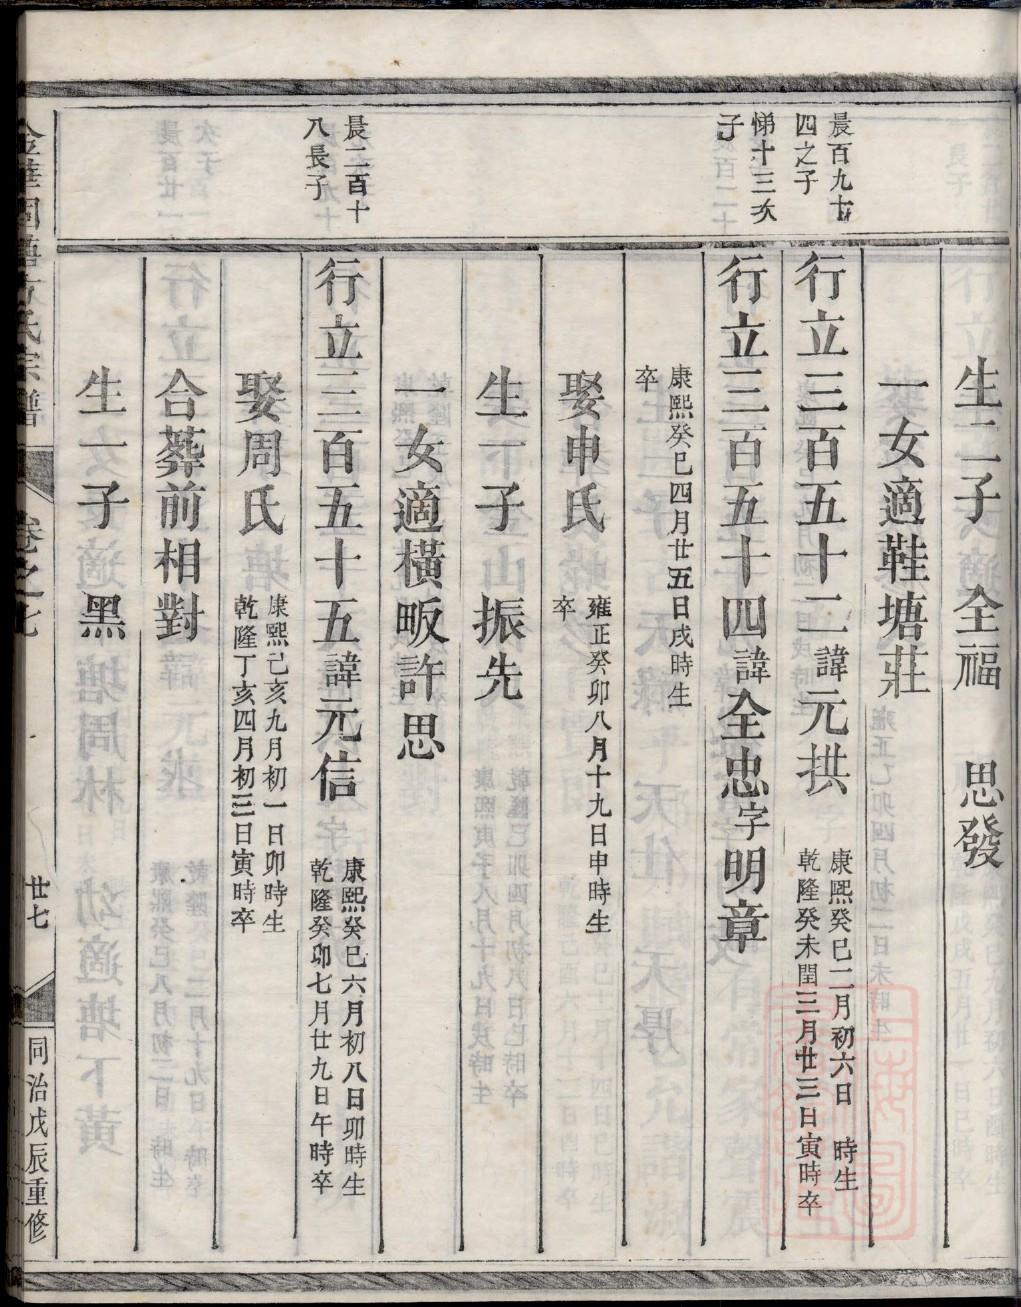 生二子 全福 思發
一女適鞋塘莊
晨百九十四之子
行立三百五十二諱元拱 康熙癸巳二月初六日 時生
乾隆癸未閏三月廿三日寅時卒
悌十三次子
行立三百五十四諱全忠字明章
康熙癸巳四月廿五日戌時生
卒
娶申氏 雍正癸卯八月十九日申時生
卒
生一子 振先
一女適橫畈許思
晨二百十八長子
行立三百五十五諱元信 康熙癸巳六月初八日卯時生
乾隆癸卯七月廿九日午時卒
娶周氏 康熙己亥九月初一日卯時生
乾隆丁亥四月初三日寅時卒
合葬前相對
生一子 黑
宗譜
卷之七
廿七
同治戊辰重修